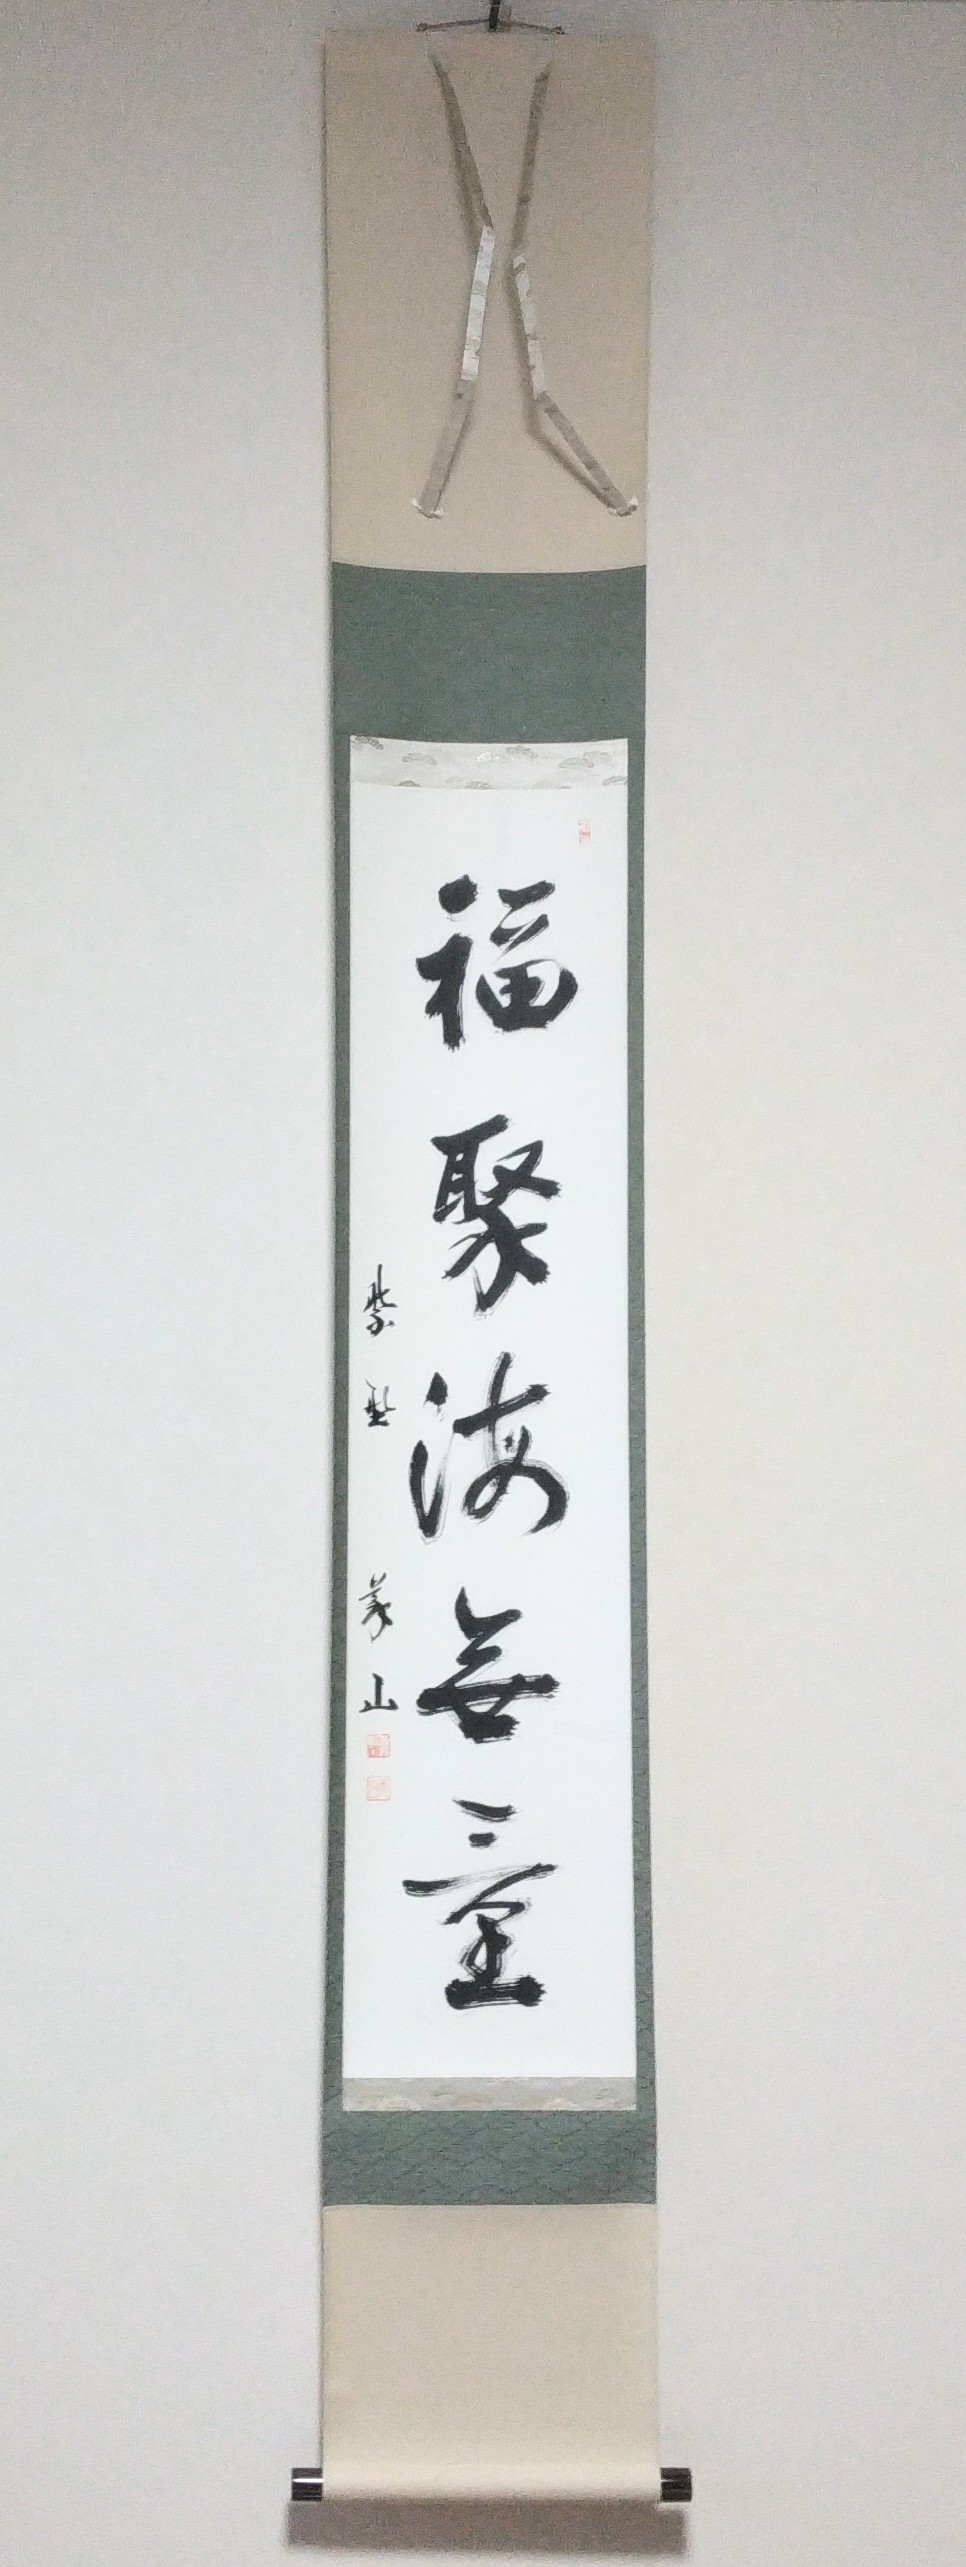 福聚海無量
紫野 義山